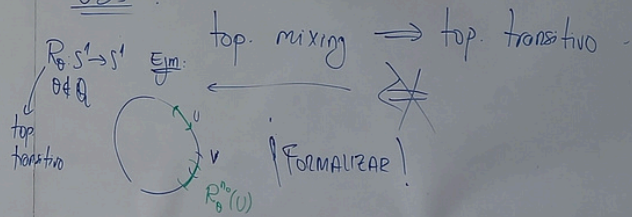 top. mixing ⟹ top. transitivo.
R_θ: S¹→S¹ Ejm:
θ∉ℚ
top.
transitivo
U
V
R_θ^{n_0}(U)
¡FORMALIZAR!